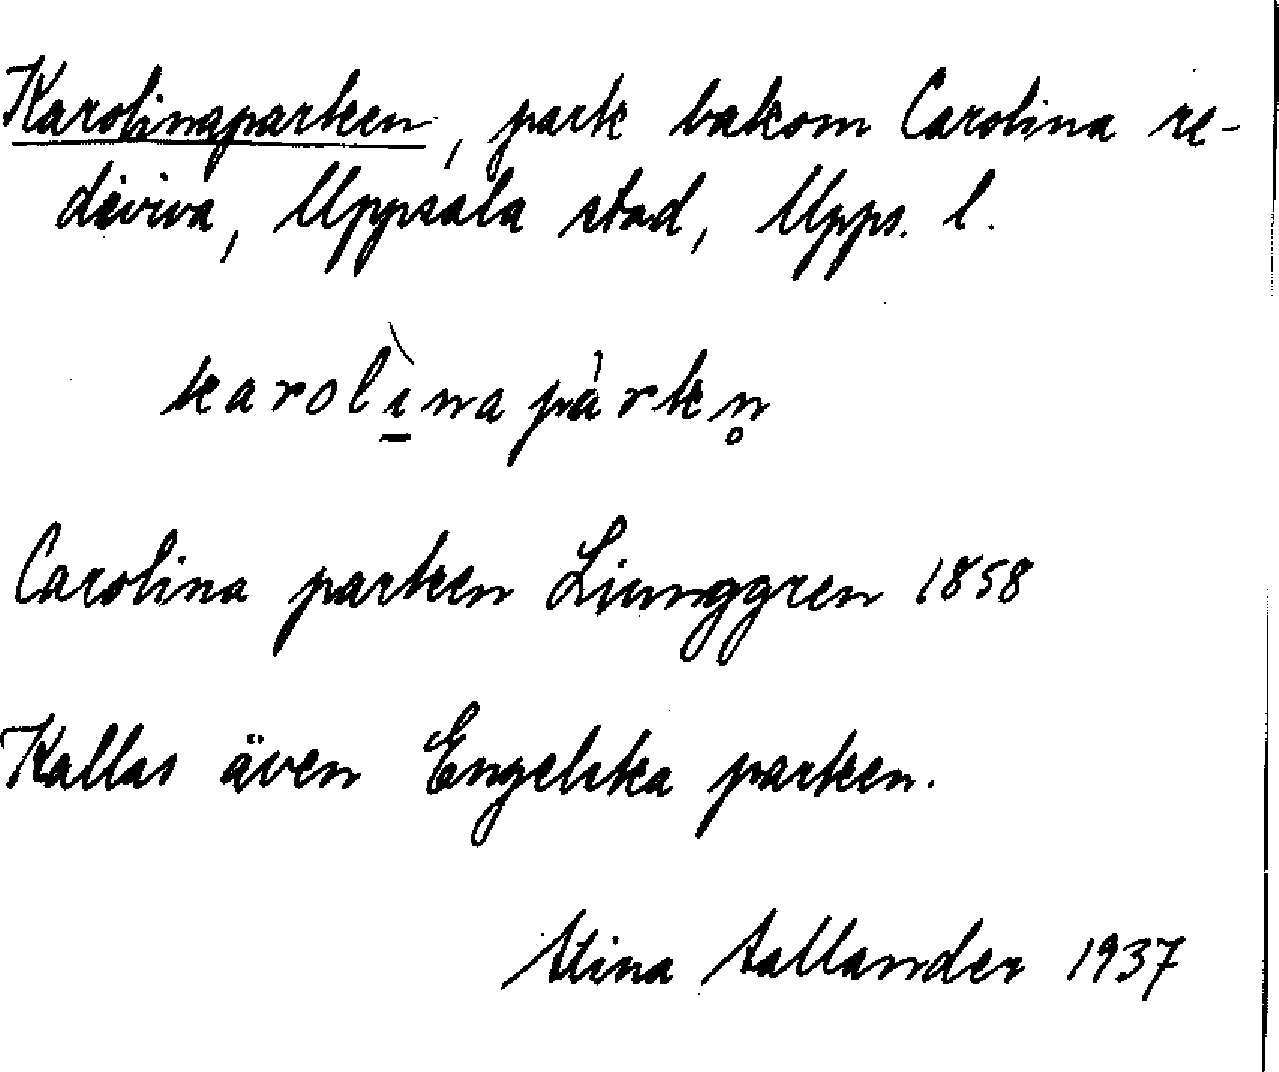 Karolinaparken, park bakom Carolina re-
diviva, Uppsala stad, Upps. l.
karolı̱̀napàrkn̥
Carolina parken Liunggren 1858
Kallas även Engelska parken.
Stina Sallander 1937